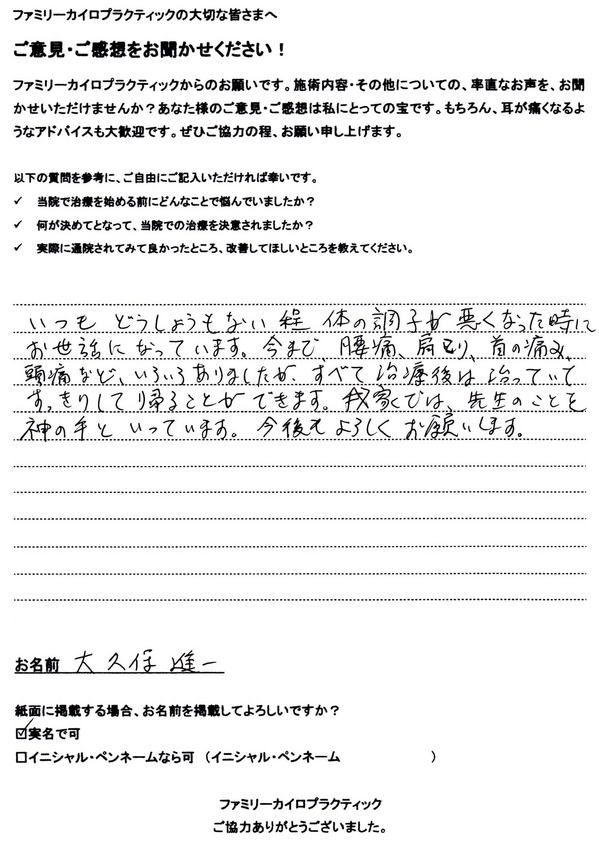 ファミリーカイロプラクティックの大切な皆さまへ
ご意見・ご感想をお聞かせください！
ファミリーカイロプラクティックからのお願いです。施術内容・その他についての、率直なお声を、お聞
かせいただけませんか？あなた様のご意見・ご感想は私にとっての宝です。もちろん、耳が痛くなるよ
うなアドバイスも大歓迎です。ぜひご協力の程、お願い申し上げます。
以下の質問を参考に、ご自由にご記入いただければ幸いです。
✓ 当院で治療を始める前にどんなことで悩んでいましたか？
✓ 何が決めてとなって、当院での治療を決意されましたか？
✓ 実際に通院されてみて良かったところ、改善してほしいところを教えてください。
いつも どうしようもない程 体の調子が悪くなった時に
お世話になっています。今まで、腰痛、肩こり、首の痛み、
頭痛など、いろいろありましたが、すべて治療後は治っていて
すっきりして帰ることができます。我家では、先生のことを
神の手といっています。今後もよろしくお願いします。
お名前 大久保 雄一
紙面に掲載する場合、お名前を掲載してよろしいですか？
☑実名で可
□イニシャル・ペンネームなら可 （イニシャル・ペンネーム ）
ファミリーカイロプラクティック
ご協力ありがとうございました。